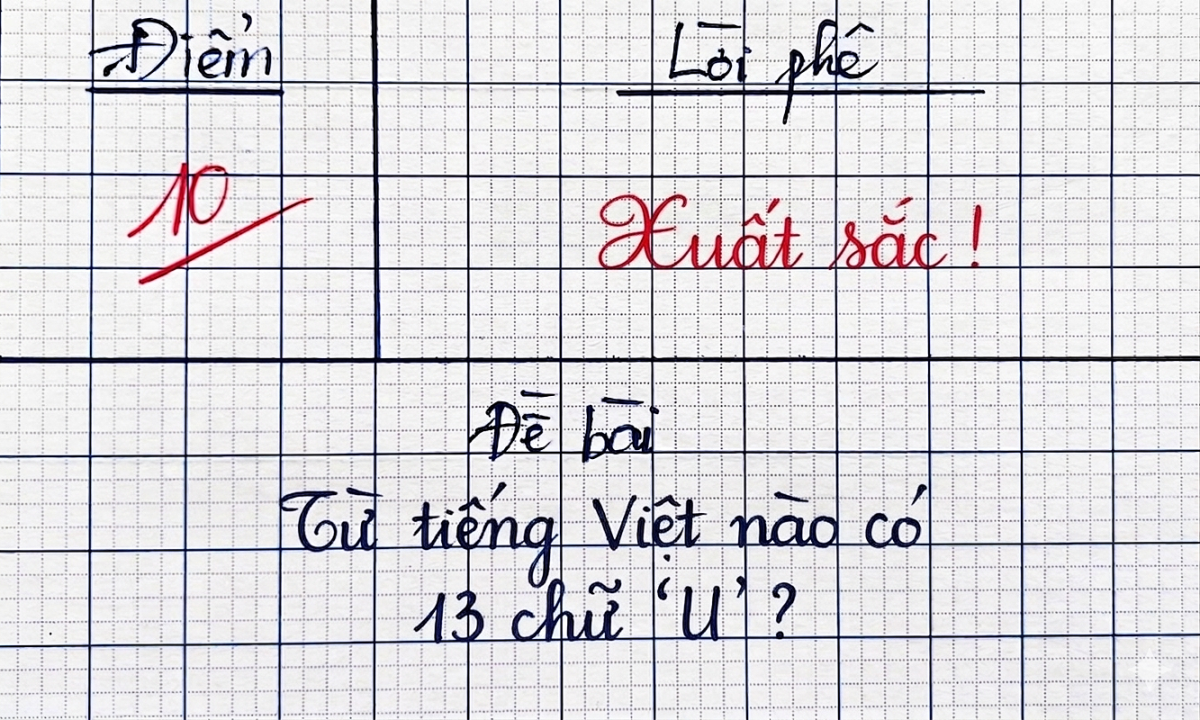 Điểm
Lời phê
10
Xuất sắc!
Đề bài
Từ tiếng Việt nào có
13 chữ 'U'?